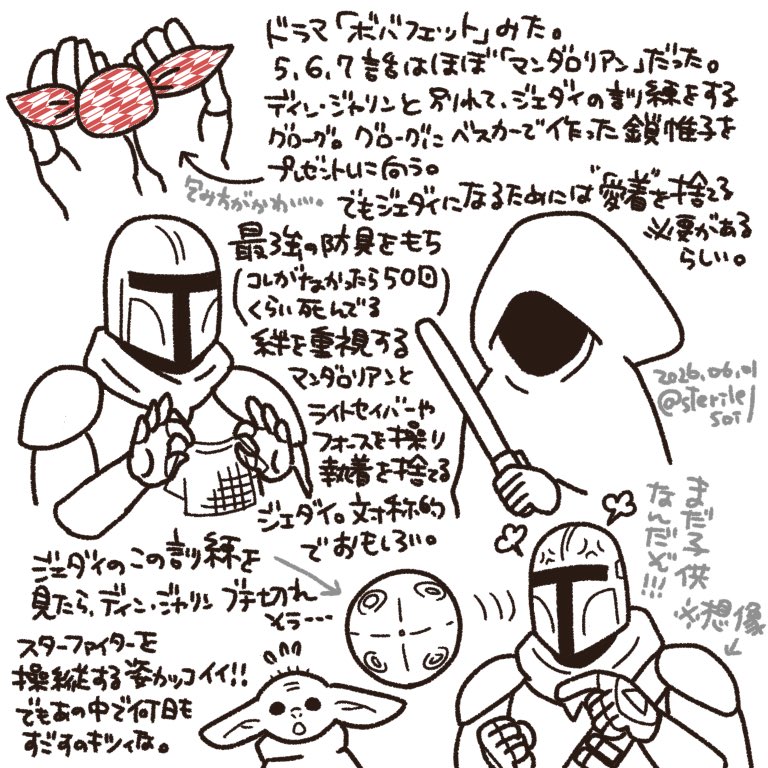 ドラマ「ボバフェット」みた。
5,6,7話はほぼ「マンダロリアン」だった。
ディン・ジャリンと別れて、ジェダイの訓練をする
グローグー。グローグーにベスカーで作った鎖帷子を
プレゼントしに向う。
包み方がかわいい。
でもジェダイになるためには"愛着"を捨てる
必要がある
らしい。
最強の防具をもち
(コレがなかったら50回
くらい死んでる)
絆を重視する
マンダロリアンと
ライトセイバーや
フォースを操り
執着を捨てる
ジェダイ。対称的
でおもしろい。
2026.06.01
@sterile1
soil
ジェダイのこの訓練を
見たら、ディン・ジャリンブチ切れ
そう…
まだ子供
なんだぞ!!!
※想像
スターファイターを
操縦する姿カッコイイ!!
でもあの中で何日も
すごすのキツイな。